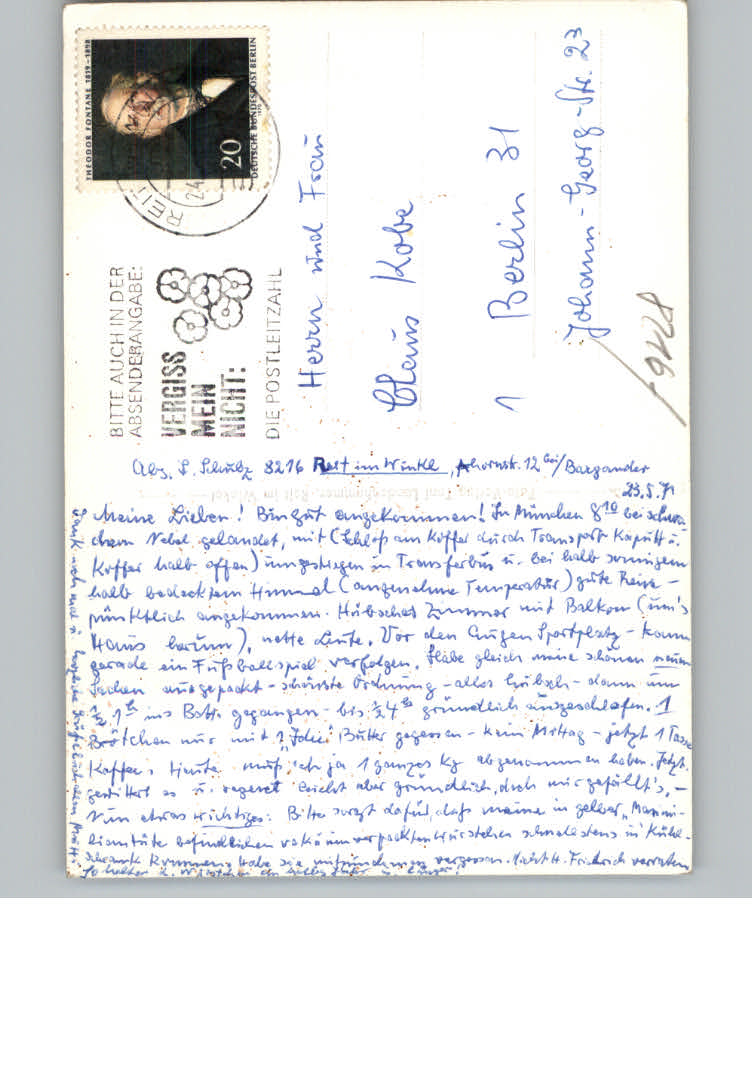 THEODOR FONTANE 1819-1898
20
DEUTSCHE BUNDESPOST BERLIN
1970
REIT
24
BITTE AUCH IN DER
ABSENDERANGABE:
VERGISS
MEIN
NICHT:
DIE POSTLEITZAHL
Herrn und Frau
Claus Kobe
1 Berlin 31
Johann-Georg-Str. 23
Abs. S. Schulz 8216 Reit im Winkl, Ahornstr. 12 bei/Bargander
23.5.71
Meine Lieben! Bin gut angekommen! In München 8 10 bei schwa-
chem Nebel gelandet, mit (Schloß am Koffer durch Transport kaputt u.
Koffer halb offen) umgestiegen in Transferbus u. bei halb sonnigem
halb bedecktem Himmel (angenehme Temperatur) gute Reise -
pünktlich angekommen. Hübsches Zimmer mit Balkon (um's
Haus herum), nette Leute. Vor den Augen Sportplatz - kann
gerade ein Fußballspiel verfolgen. Habe gleich meine schönen neuen
Sachen ausgepackt - schönste Ordnung - alles hübsch - dann um
½ 1 h ins Bett gegangen - bis ½ 4 h gründlich ausgeschlafen. 1
Brötchen nur mit Butter gegessen - kein Mittag - jetzt 1 Tasse
Kaffee. Heute muß ich ja 1 ganzes kg abgenommen haben. Jetzt
gewittert es u. regnet leicht aber gründlich, doch mir gefällt's, -
Nun etwas wichtiges: Bitte sorgt dafür, daß meine in gelber "Maximi-
liantüte befindlichen vakuumverpackten Würstchen schnellstens in Kühl-
schrank kommen. Habe sie mitzunehmen vergessen. Nicht H. Friedrich verraten